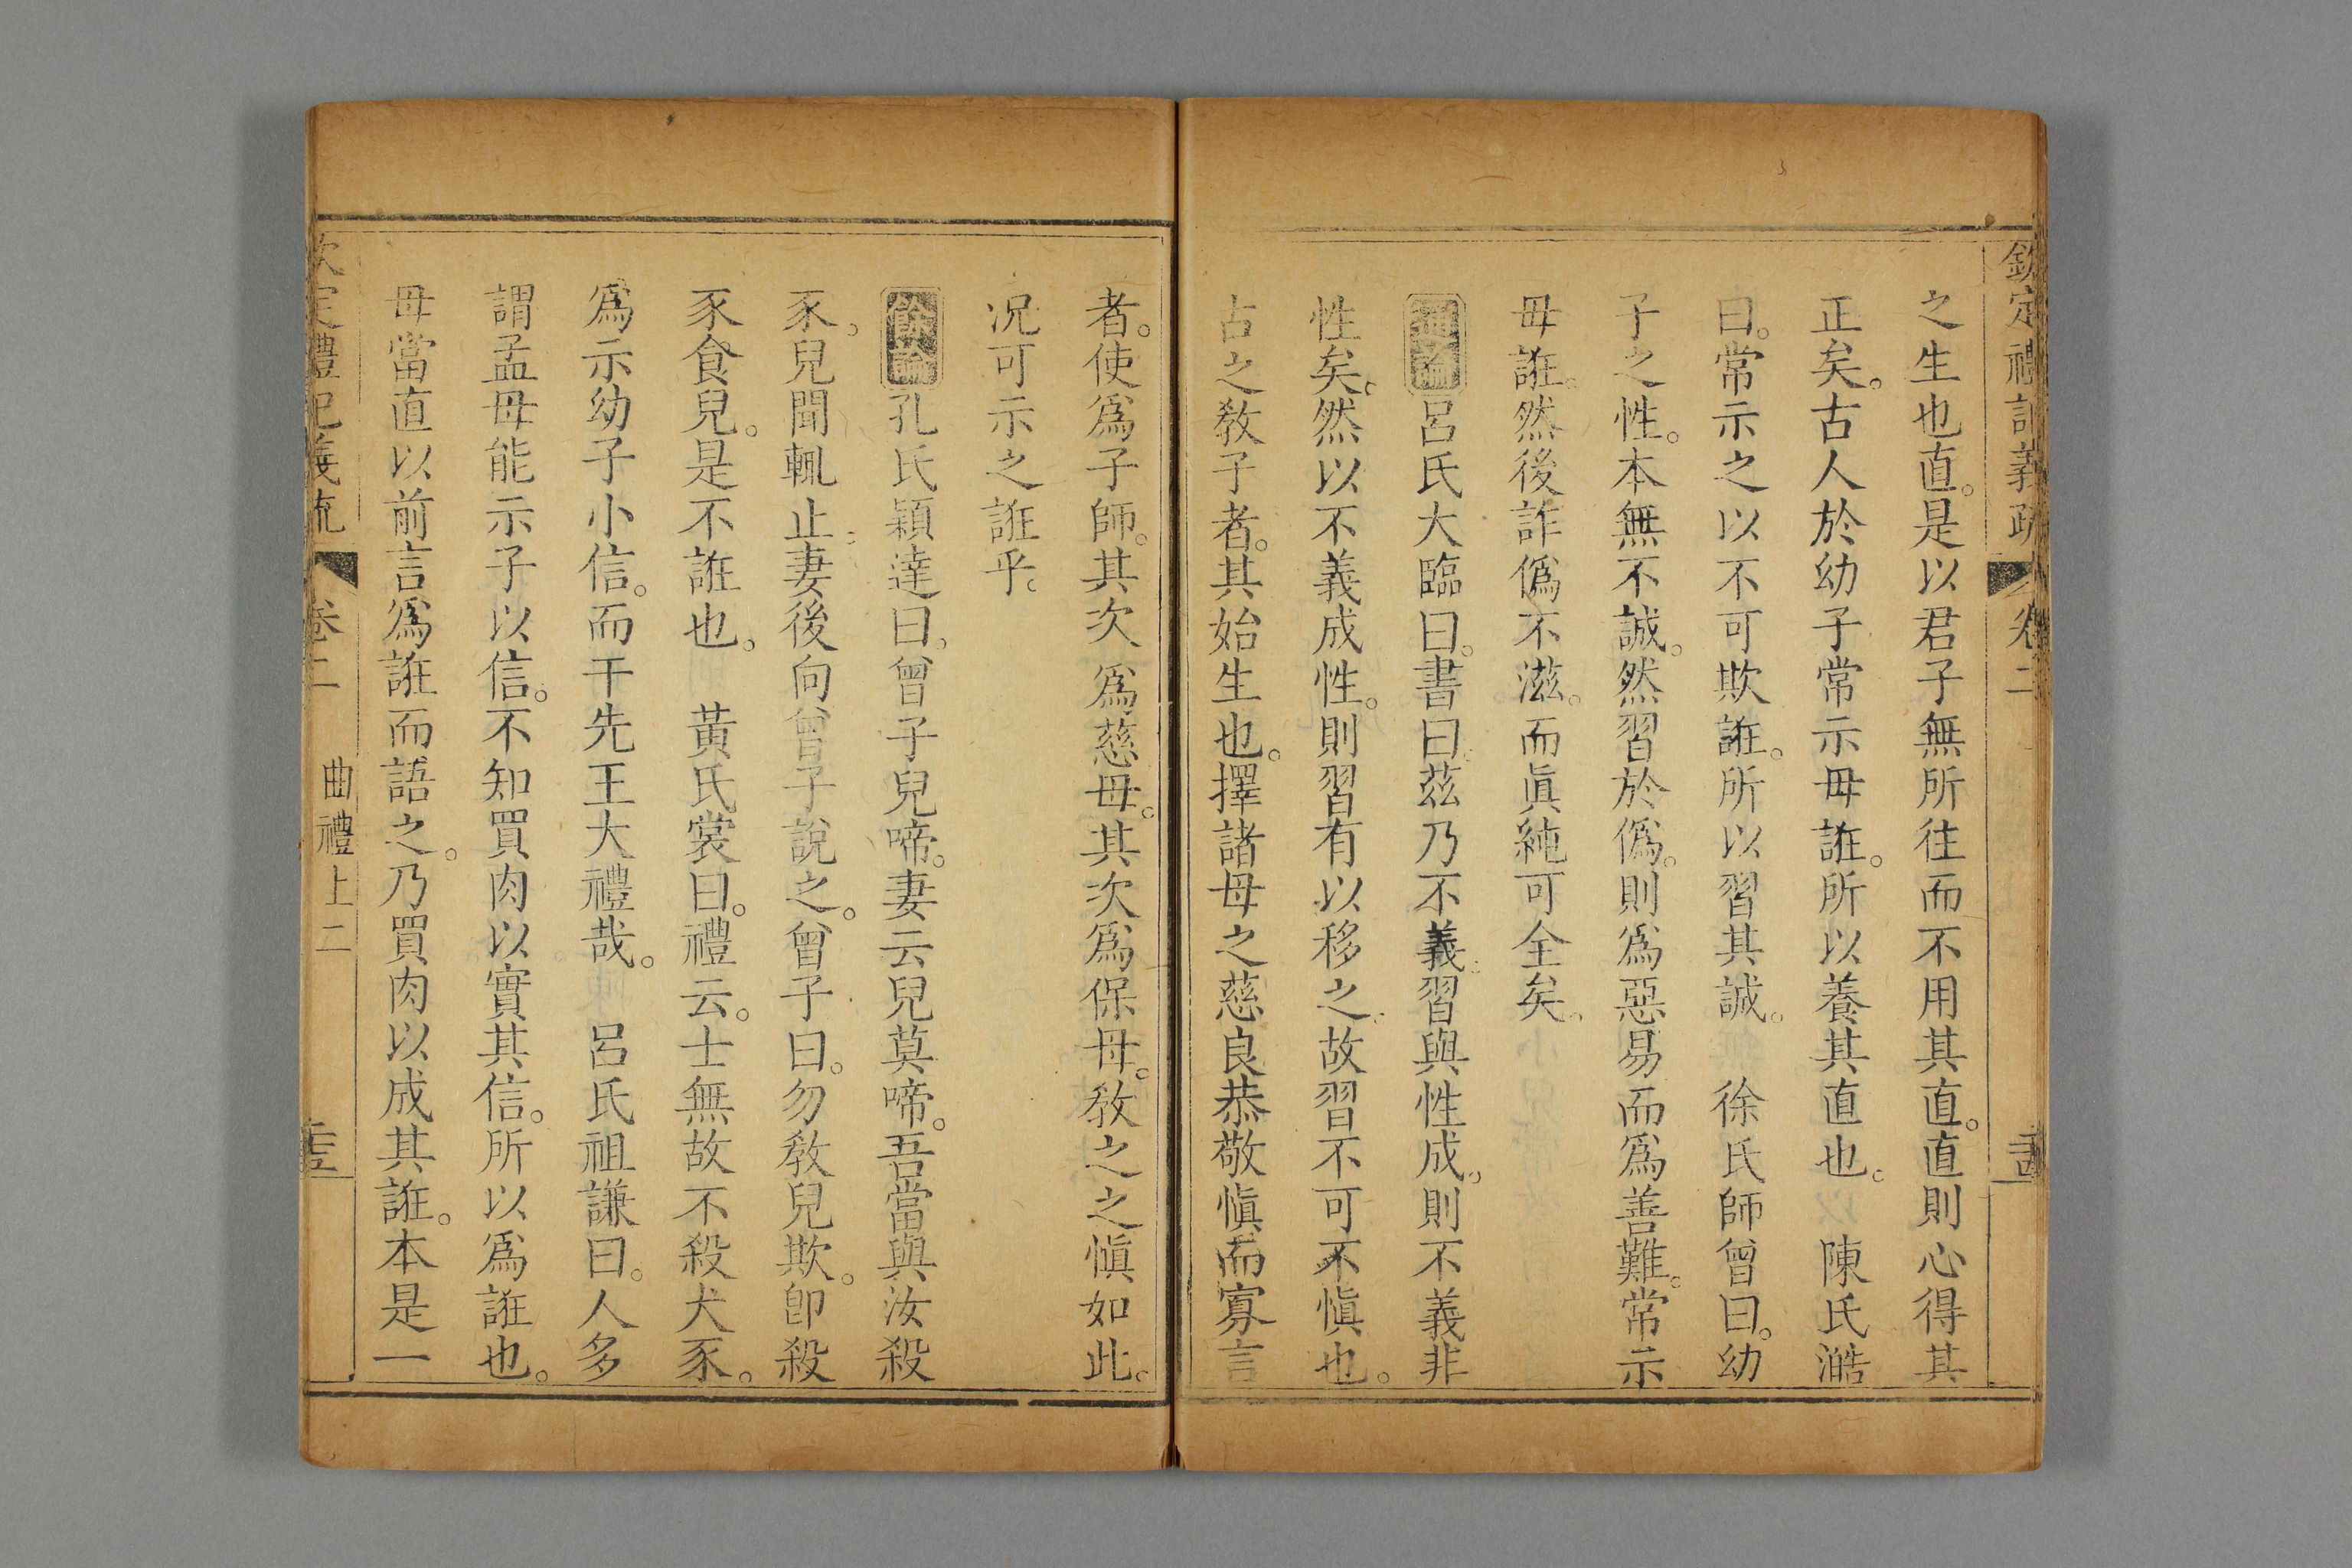 欽定禮記義疏 卷二
之生也直。是以君子無所往而不用其直。直則心得其
正矣。古人於幼子常示毋誑。所以養其直也。 陳氏澔
曰。常示之以不可欺誑。所以習其誠。 徐氏師曾曰。幼
子之性。本無不誠。然習於僞。則爲惡易而爲善難。常示
毋誑。然後詐僞不滋。而眞純可全矣。
通論 呂氏大臨曰。書曰。茲乃不義。習與性成。則不義非
性矣。然以不義成性。則習有以移之。故習不可不愼也。
古之敎子者。其始生也。擇諸母之慈良恭敬愼而寡言
者。使爲子師。其次爲慈母。其次爲保母。敎之之愼如此。
况可示之誑乎。
餘論 孔氏穎達曰。曾子兒啼。妻云兒莫啼。吾當與汝殺
豕。兒聞輒止。妻後向曾子說之。曾子曰。勿敎兒欺。卽殺
豕食兒。是不誑也。 黃氏裳曰。禮云。士無故不殺犬豕。
爲示幼子小信。而干先王大禮哉。 呂氏祖謙曰。人多
謂孟母能示子以信。不知買肉以實其信。所以爲誑也。
母當直以前言爲誑而語之。乃買肉以成其誑。本是一
欽定禮記義疏 卷二 曲禮上二